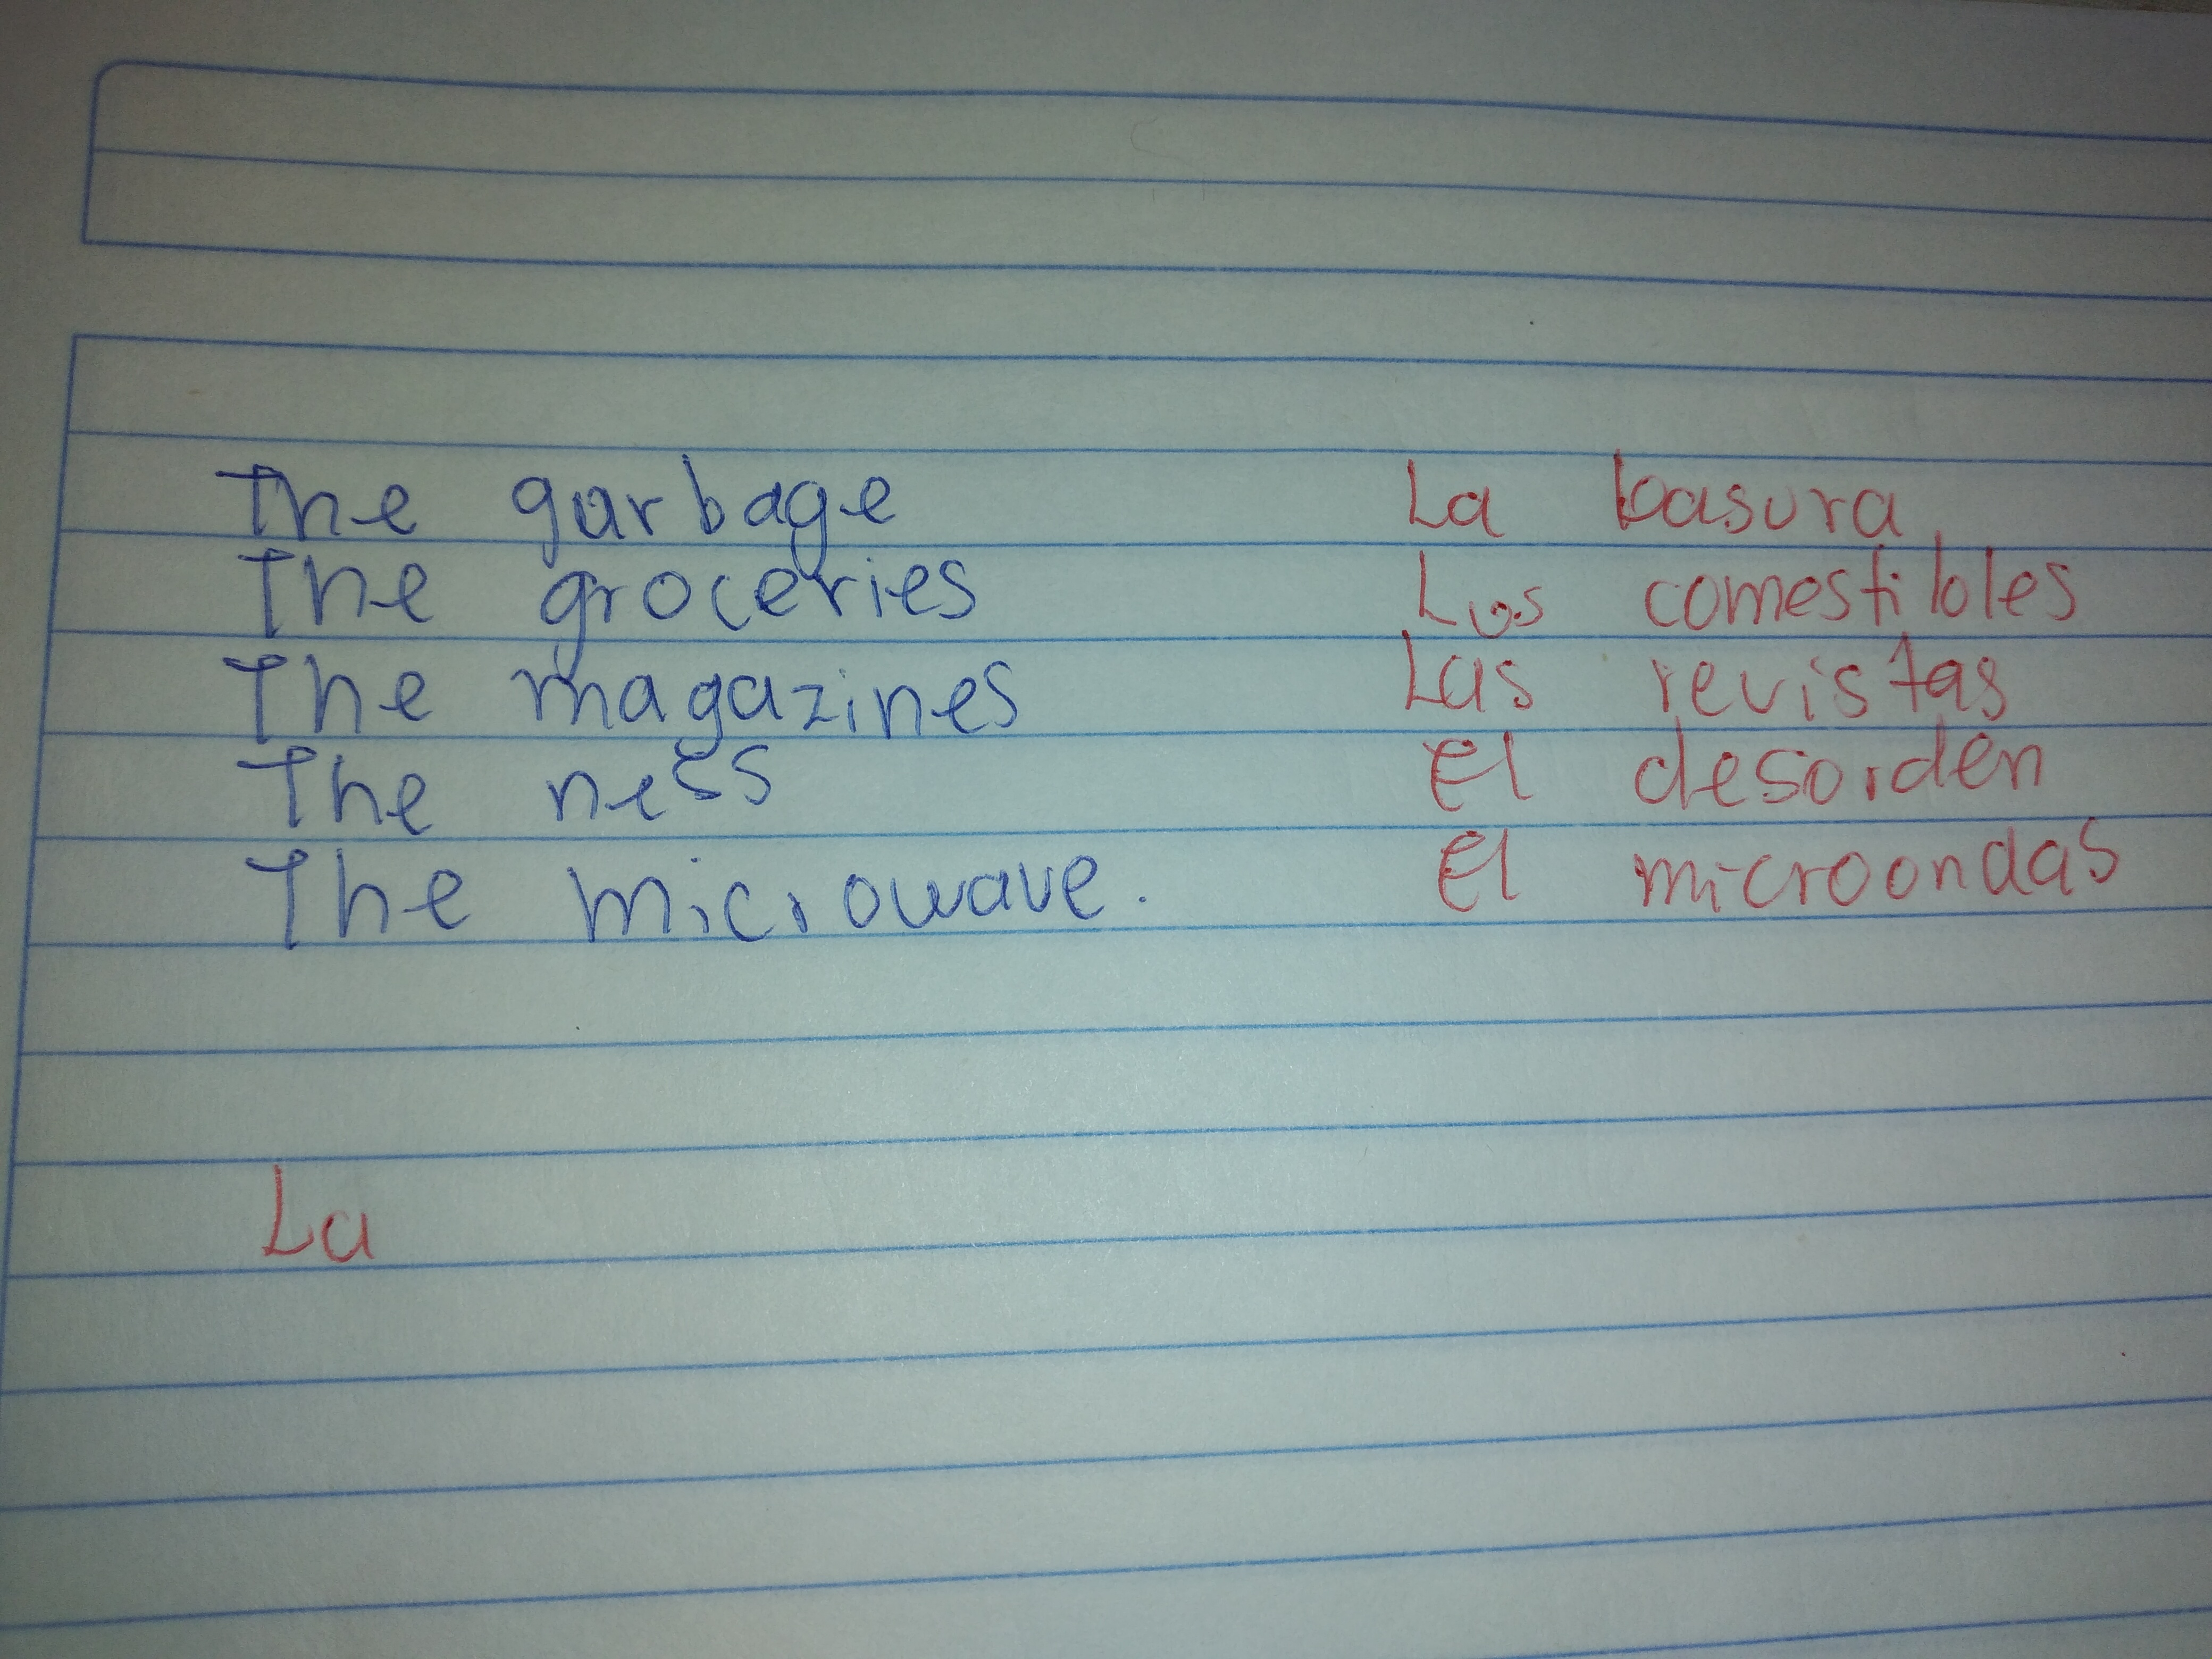 The garbage La basura
The groceries Los comestibles
The magazines Las revistas
The ness El desorden
The microwave. El microondas
La